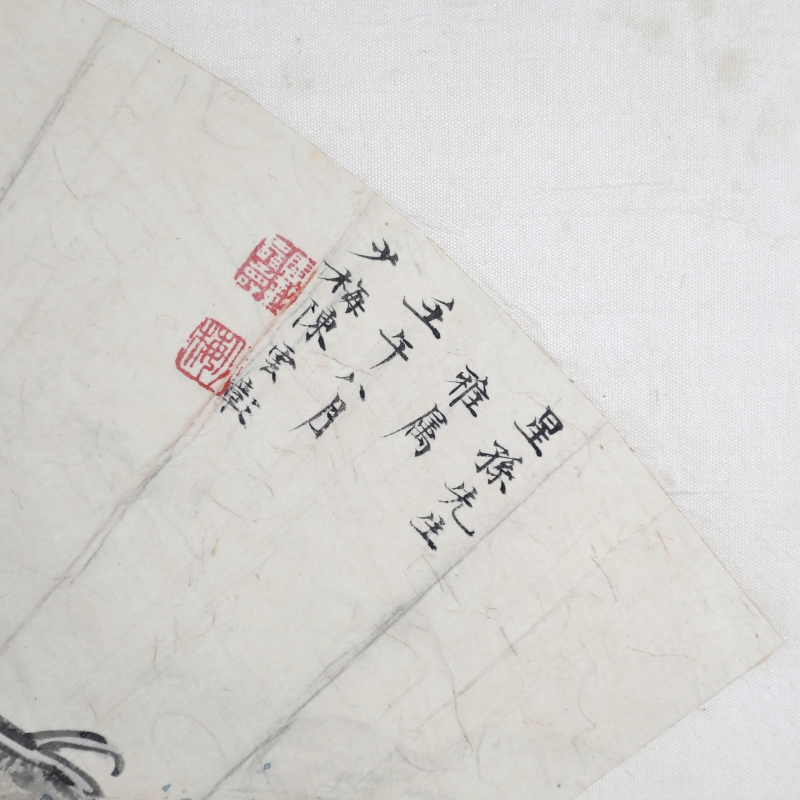 星孫先生
雅属
壬午八月
少梅陳雲彰